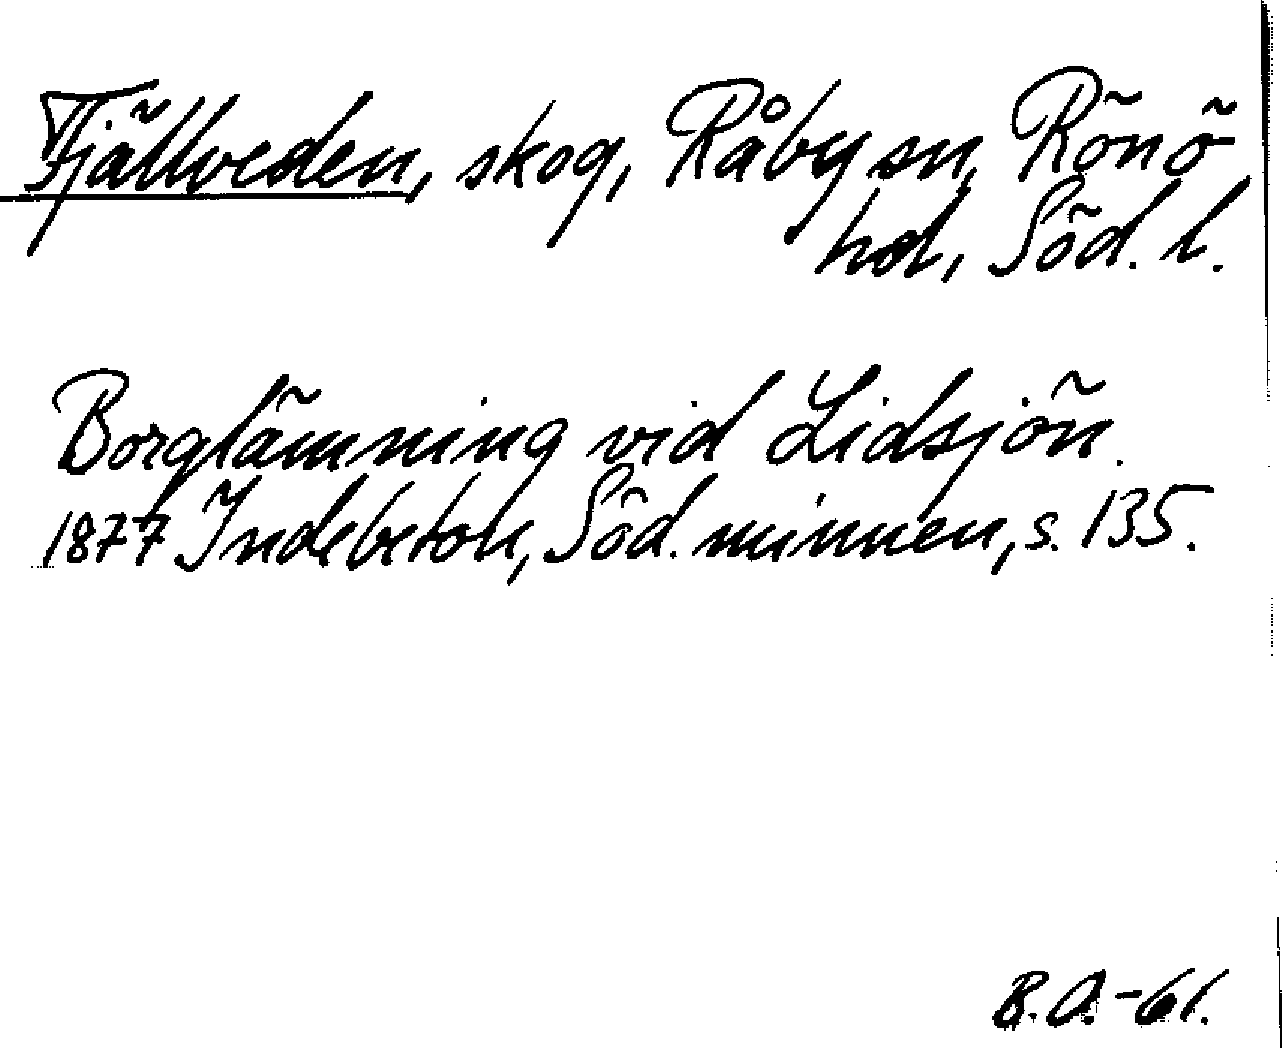 Fjällveden, skog, Råby sn, Rönö
hd, Söd. l.
Borglämning vid Lidsjön.
1877 Indebetou, Söd. minnen, s. 135.
B.O.-61.